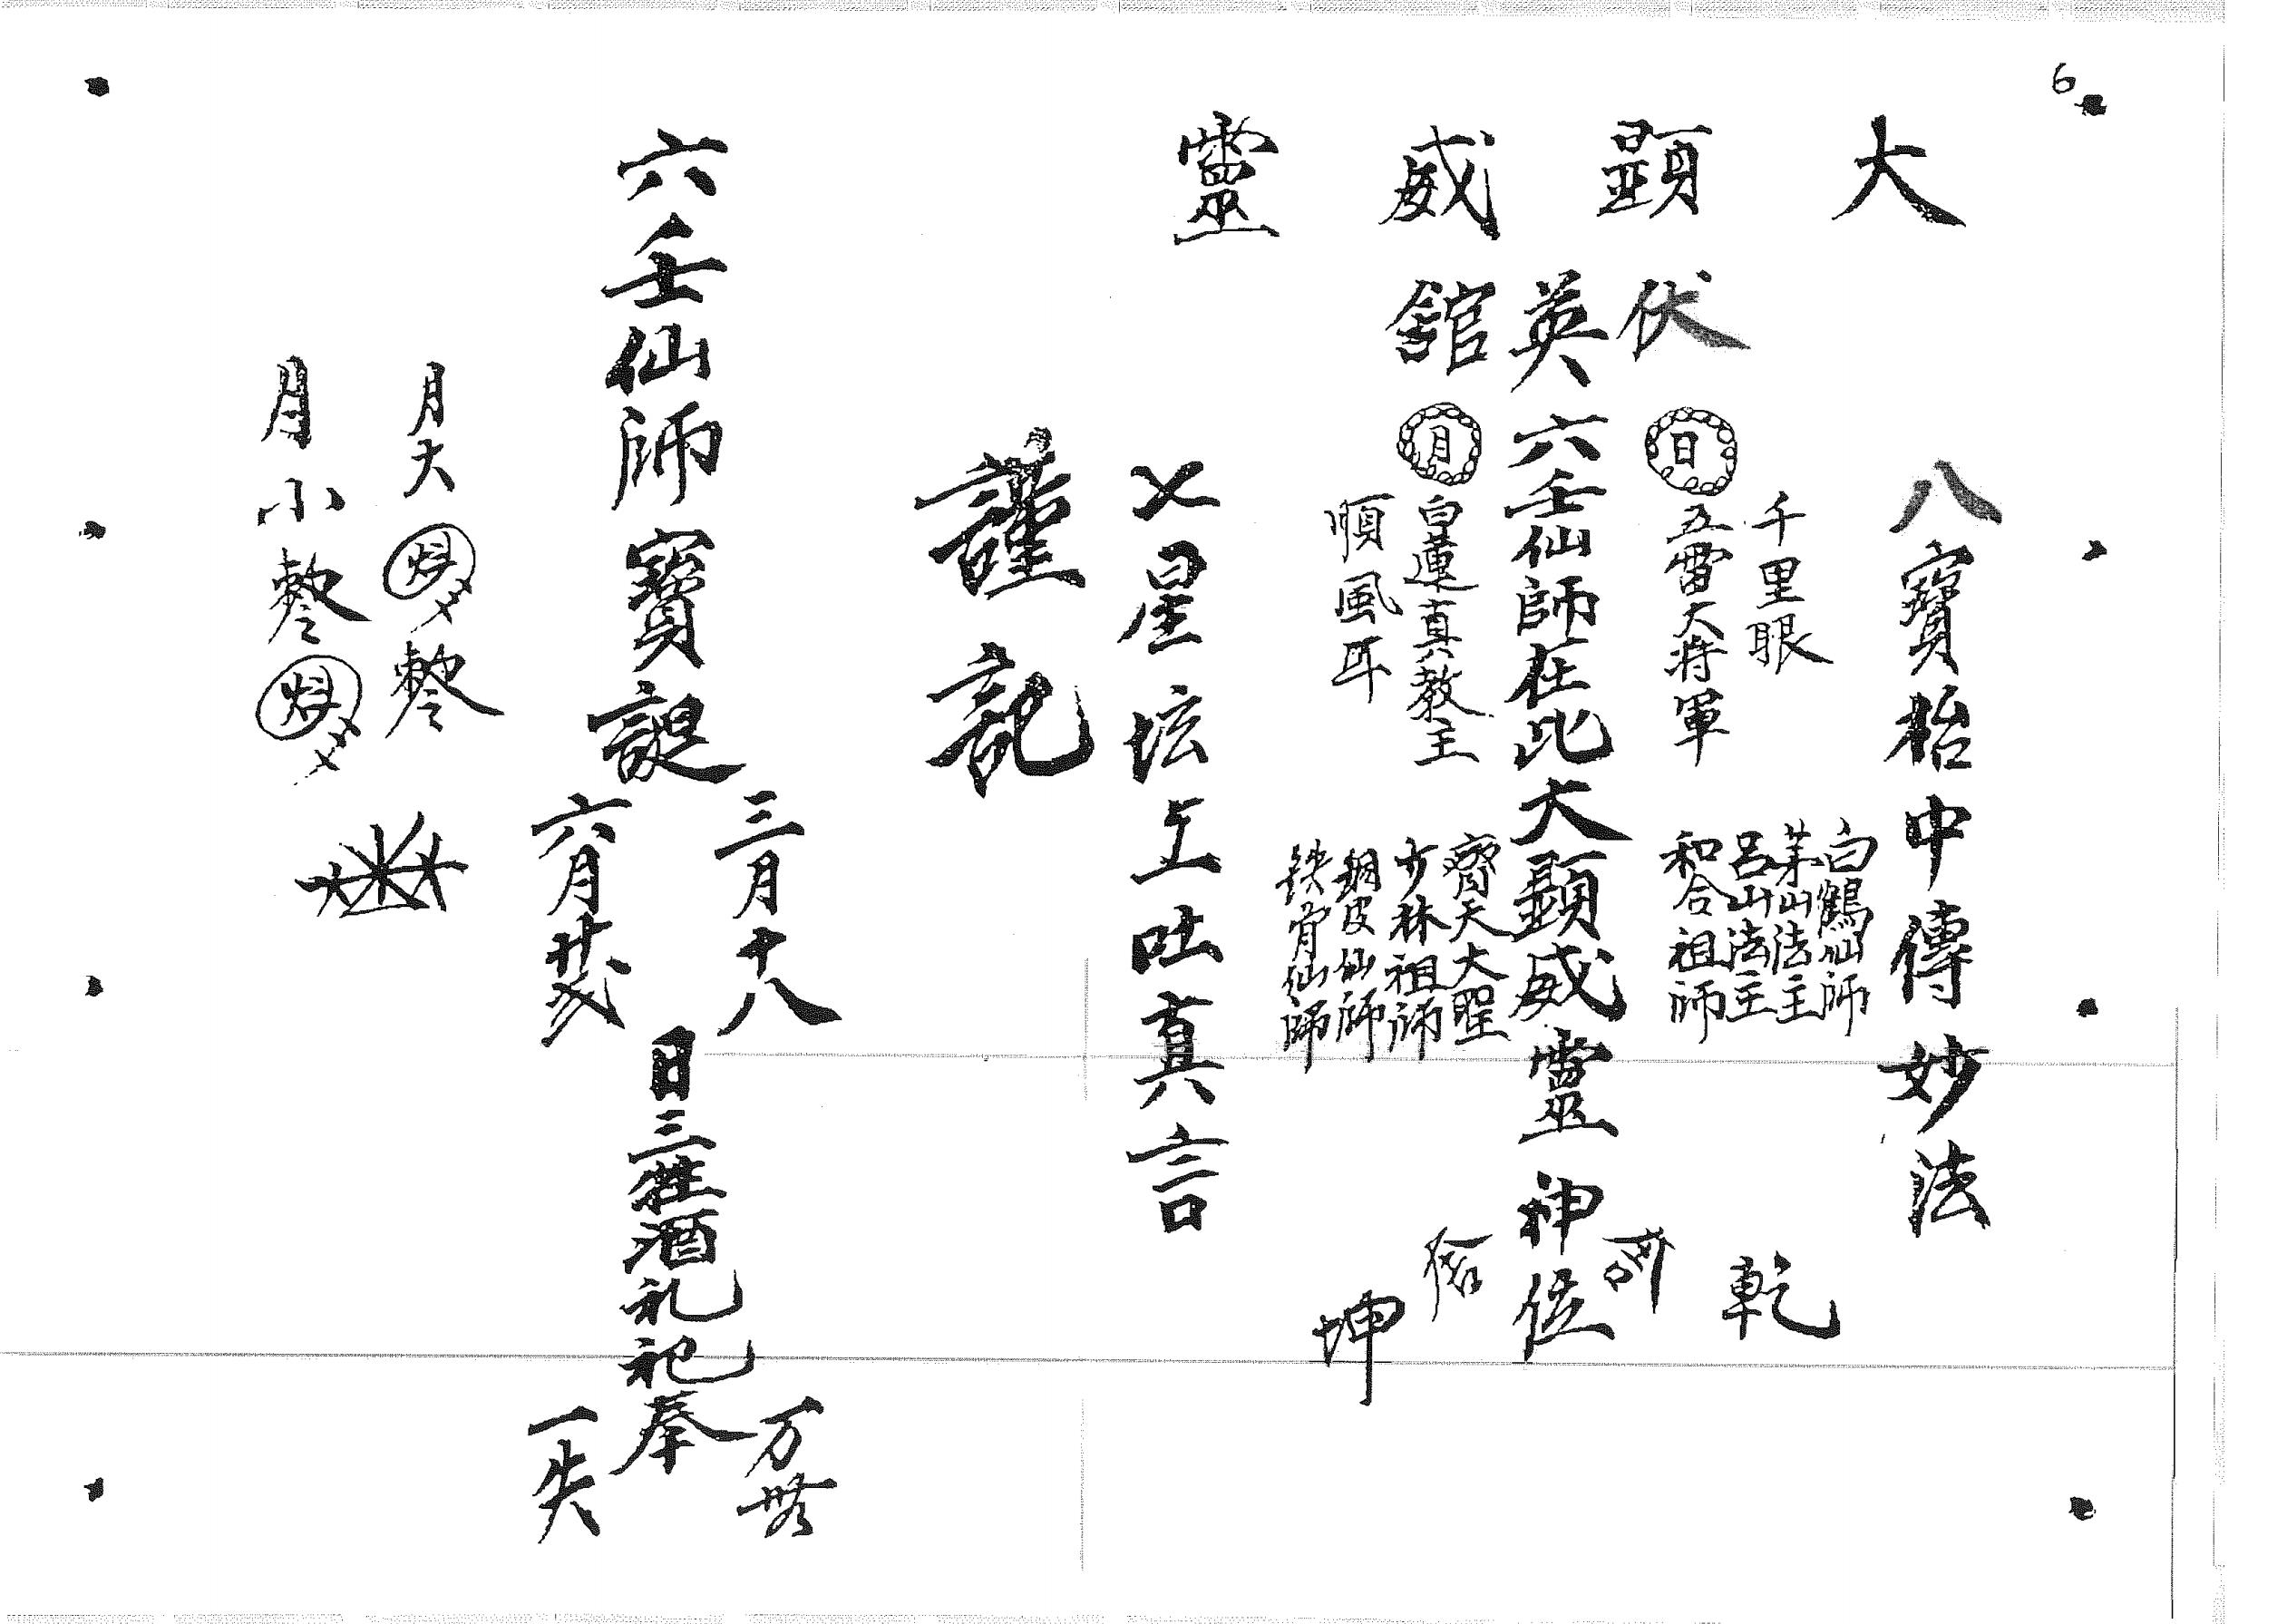 6
大顕威靈
伏英舘
八寶枱中傳妙法
千里眼
日
五雷大将軍
白鶴仙師
茅山法主
呂山法主
和合祖師
六壬仙師在此大顕威靈神位
月
白蓮真教主
順風耳
齊天大聖
少林祖師
銅皮仙師
鉄骨仙師
乾
坤
七星坛上吐真言
謹記
六壬仙師寶誕
三月十八
六月廿弍
日三牲酒礼祀奉
万
一失
月大
月小